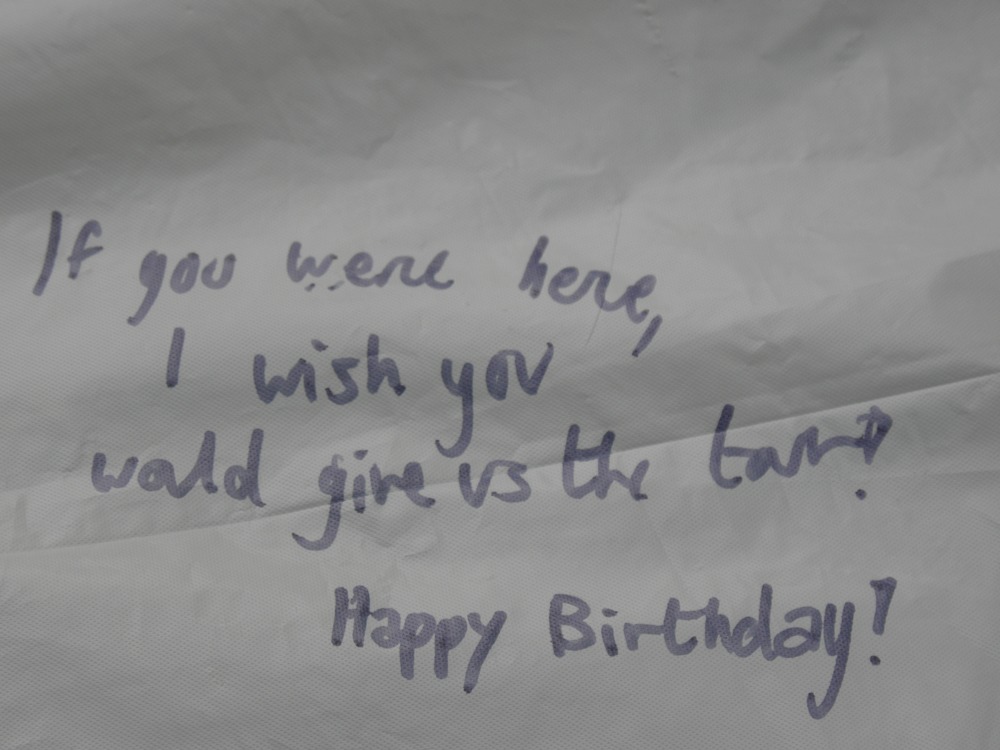 If you were here,
I wish you
would give us the tour?
Happy Birthday!